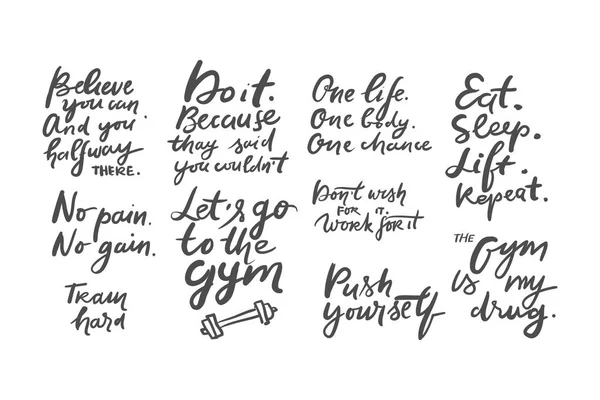 Believe
you can
And you
halfway
THERE.
No pain.
No gain.
Train
hard
Do it.
Because
thay said
you couldn't
Let's go
to the
gym
One life.
One body.
One chance
Don't wish
FOR IT.
Work for it
Push
yourself
Eat.
Sleep.
Lift.
Repeat.
THE Gym
is my
drug.